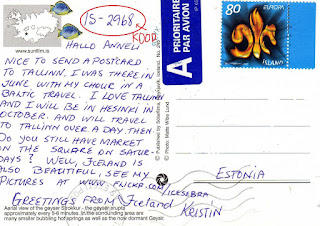 IS-2968
KOOD
www.sunfilm.is
HALLO ANNELI
NICE TO SEND A POSTCARD
TO TALLINN, I WAS THERE IN
JUNE WITH MY CHOIR IN A
BALTIC TRAVEL. I LOVE TALLINN
AND I WILL BE IN HESINKI IN
OCTOBER. AND WILL TRAVEL
TO TALLINN OVER A DAY THEN.
DO YOU STILL HAVE MARKET
ON THE SQUARE ON SATUR-
DAYS? WELL, ICELAND IS
ALSO BEAUTIFUL, SEE MY
PICTURES AT WWW.FLICKR.COM/ICESEBRA
GREETINGS FROM Iceland
KRISTÍN
Aerial view of the geyser Strokkur - the geyser erupts
approximately every 5-6 minutes. In the surrounding area are
many smaller bubbling hot springs as well as the now dormant Geysir.
A PRIORITAIRE
PAR AVION
80 EUROPA
ÍSLAND
ESTONIA